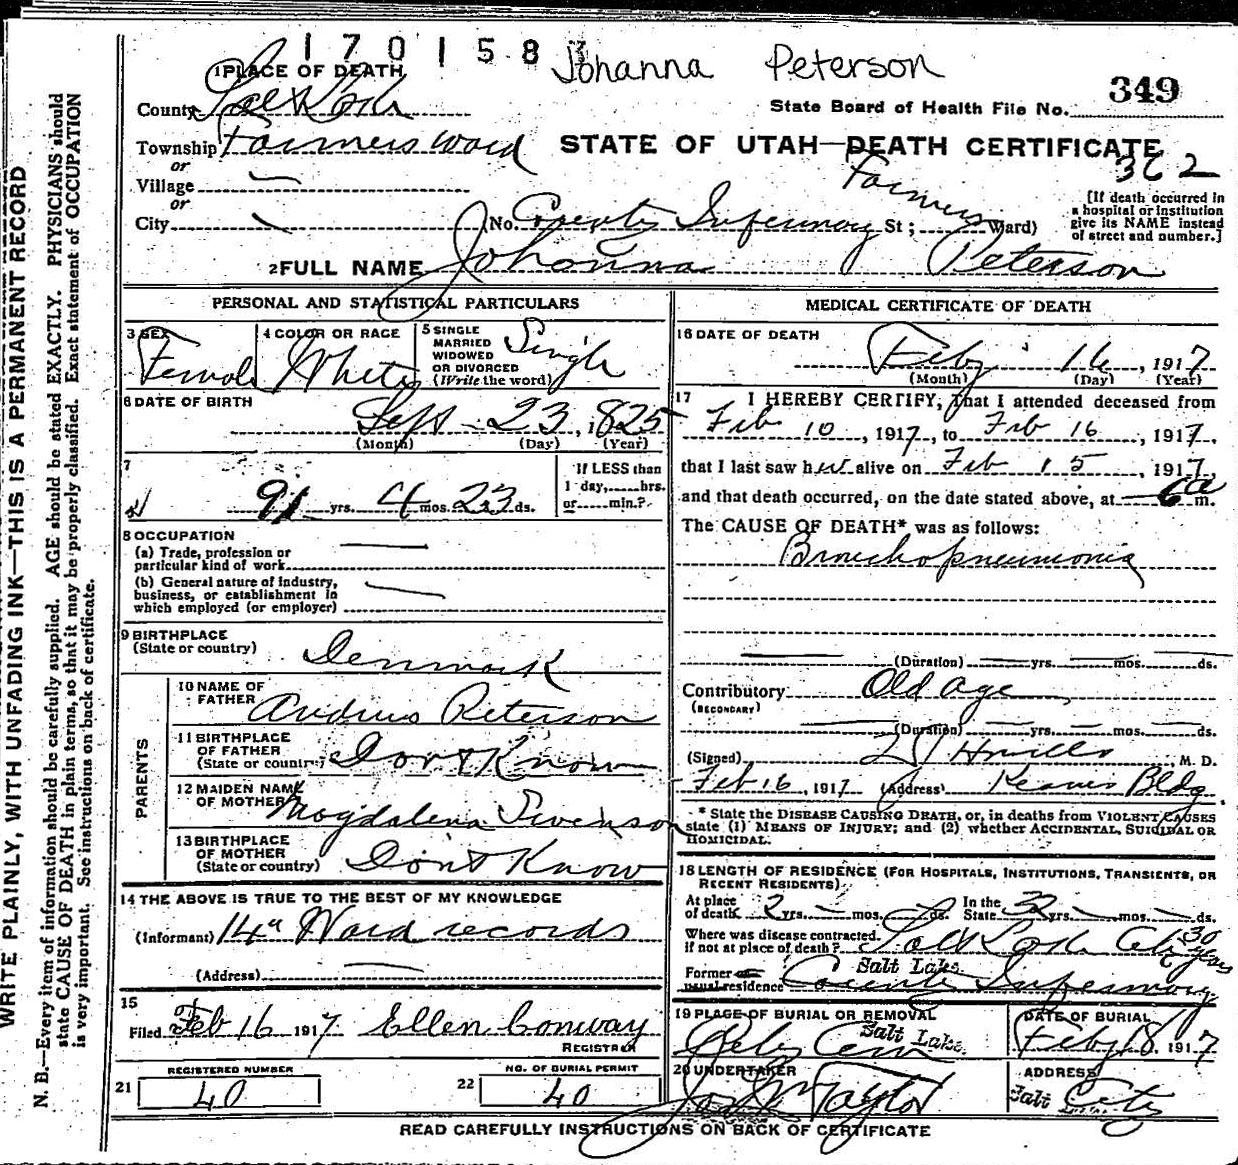 1701583 Johanna Peterson
1 PLACE OF DEATH
349
State Board of Health File No.
County Salt Lake
Township Farmers Ward
STATE OF UTAH—DEATH CERTIFICATE
362
or
Village
or
City
(No. County Infirmary St; Farmers Ward)
[If death occurred in
a hospital or institution
give its NAME instead
of street and number.]
2 FULL NAME Johanna Peterson
PERSONAL AND STATISTICAL PARTICULARS
3 SEX
Female
4 COLOR OR RACE
White
5 SINGLE
MARRIED
WIDOWED
OR DIVORCED
(Write the word)
Single
6 DATE OF BIRTH
Sept 23, 1825
(Month) (Day) (Year)
7
91 yrs. 4 mos. 23 ds.
If LESS than
1 day, hrs.
or min.?
8 OCCUPATION
(a) Trade, profession or
particular kind of work
(b) General nature of industry,
business, or establishment in
which employed (or employer)
9 BIRTHPLACE
(State or country)
Denmark
PARENTS
10 NAME OF
FATHER
Andrus Peterson
11 BIRTHPLACE
OF FATHER
(State or country)
Don't Know
12 MAIDEN NAME
OF MOTHER
Magdalena Swenson
13 BIRTHPLACE
OF MOTHER
(State or country)
Don't Know
14 THE ABOVE IS TRUE TO THE BEST OF MY KNOWLEDGE
(Informant) 14th Ward records
(Address)
15
Filed Feb 16 1917 Ellen Conway
REGISTRAR
21
REGISTERED NUMBER
40
22
NO. OF BURIAL PERMIT
40
MEDICAL CERTIFICATE OF DEATH
16 DATE OF DEATH
Feby 16, 1917
(Month) (Day) (Year)
17 I HEREBY CERTIFY, That I attended deceased from
Feb 10, 1917, to Feb 16, 1917,
that I last saw her alive on Feb 15, 1917,
and that death occurred, on the date stated above, at 6 a m.
The CAUSE OF DEATH* was as follows:
Bronchopneumonia
(Duration) yrs. mos. ds.
Contributory Old Age
(SECONDARY)
(Duration) yrs. mos. ds.
(Signed) M. D.
Feb 16, 1917 (Address) Kearns Bldg.
* State the DISEASE CAUSING DEATH, or, in deaths from VIOLENT CAUSES
state (1) MEANS OF INJURY; and (2) whether ACCIDENTAL, SUICIDAL OR
HOMICIDAL.
18 LENGTH OF RESIDENCE (FOR HOSPITALS, INSTITUTIONS, TRANSIENTS, OR
RECENT RESIDENTS).
At place
of death 2 yrs. mos. ds.
In the
State 32 yrs. mos. ds.
Where was disease contracted.
if not at place of death? Salt Lake City 30 years
Former or
usual residence Salt Lake County Infirmary
19 PLACE OF BURIAL OR REMOVAL
Salt Lake
City Cem
DATE OF BURIAL
Feby 18, 1917
20 UNDERTAKER
Jos Wm Taylor
ADDRESS
Salt Lake City
READ CAREFULLY INSTRUCTIONS ON BACK OF CERTIFICATE
WRITE PLAINLY, WITH UNFADING INK—THIS IS A PERMANENT RECORD
N. B.—Every item of information should be carefully supplied. AGE should be stated EXACTLY. PHYSICIANS should
state CAUSE OF DEATH in plain terms, so that it may be properly classified. Exact statement of OCCUPATION
is very important. See instructions on back of certificate.